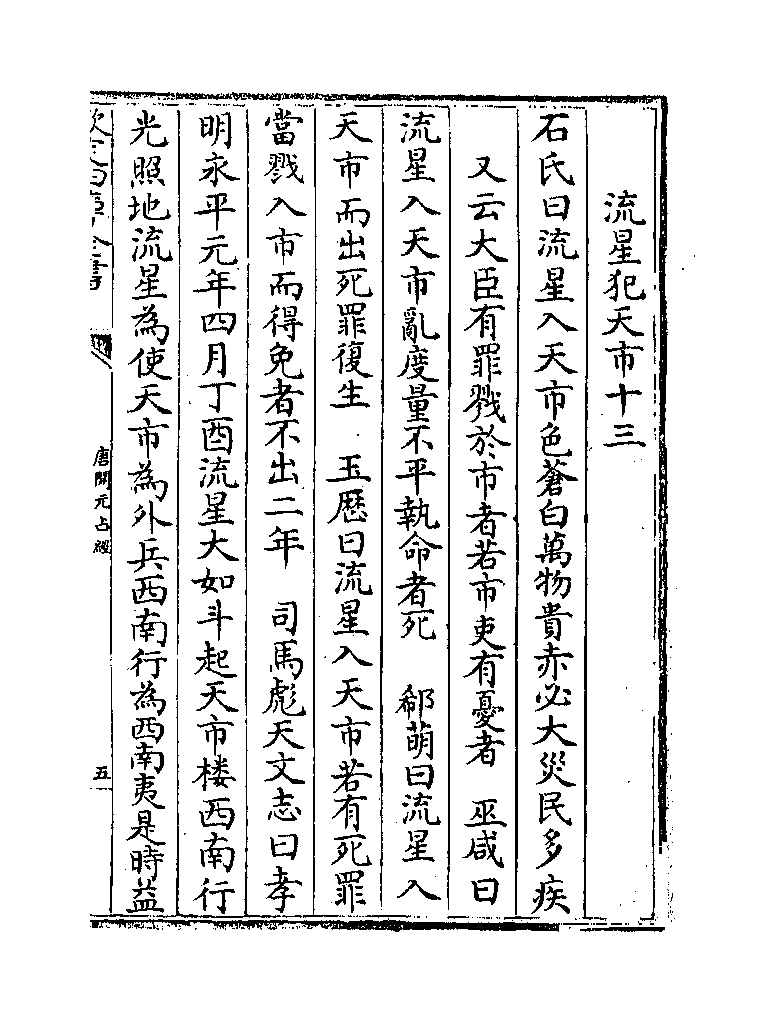 流星犯天市十三
石氏曰流星入天市色蒼白萬物貴赤必大災民多疾
又云大臣有罪戮於市者若市吏有憂者　巫咸曰
流星入天市亂度量不平執命者死　郗萌曰流星入
天市而出死罪復生　玉厯曰流星入天市若有死罪
當戮入市而得免者不出二年　司馬彪天文志曰孝
明永平元年四月丁酉流星大如斗起天市楼西南行
光照地流星為使天市為外兵西南行為西南夷是時益
唐開元占經
五